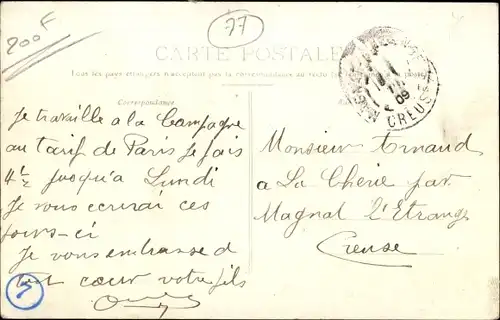 200F
77
CARTE POSTALE
Tous les pays étrangers n'acceptent pas la correspondance au recto
Correspondance
MAGNAT L'ETRANGE
09
CREUSE
Je travaille a la Campagne
au tarif de Paris je fais
4 1/2 jusqu'a Lundi
Je vous ecrirai ces
jours-ci
Je vous embrasse d
tout cœur votre fils
Monsieur Arnaud
a La Cherie par
Magnat l'Etrange
Creuse